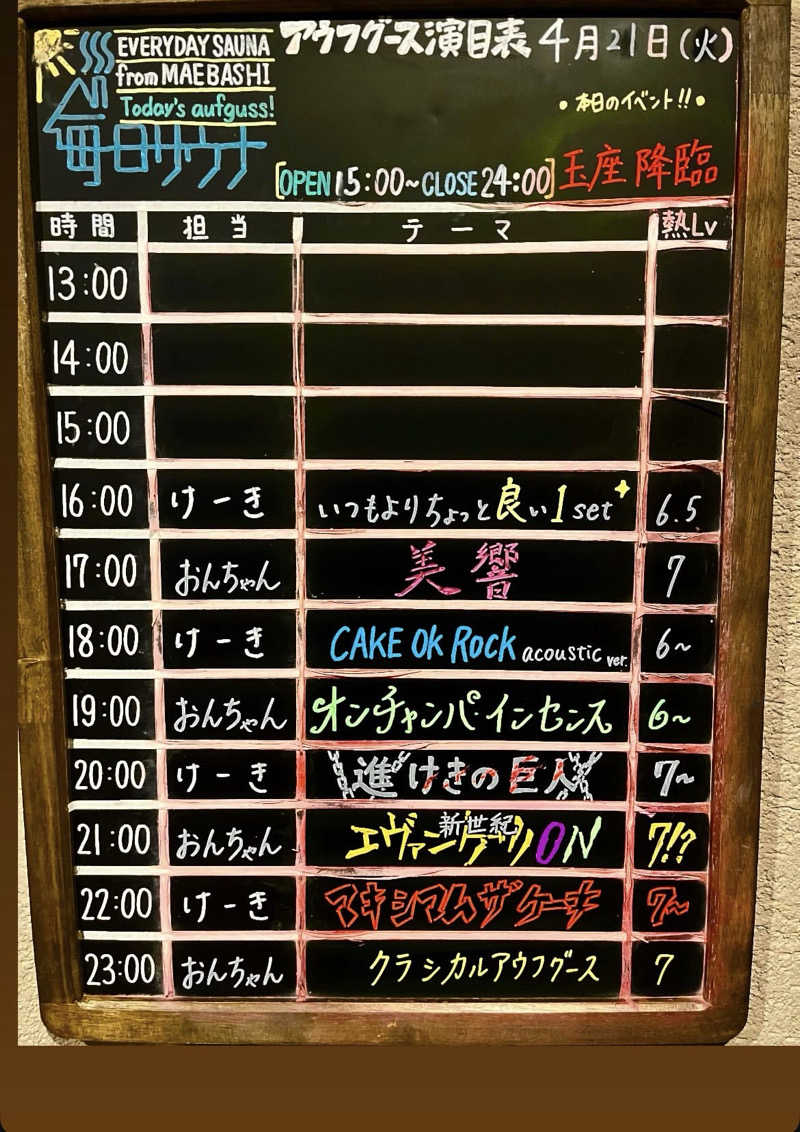 EVERYDAY SAUNA
from MAEBASHI
Today's aufguss!
毎日サウナ
アウフグース演目表 4月21日(火)
•本日のイベント!!•
[OPEN 15:00~CLOSE 24:00] 玉座降臨
時間 担当 テーマ 熱Lv
13:00
14:00
15:00
16:00 けーき いつもよりちょっと良い1set 6.5
17:00 おんちゃん 美響 7
18:00 けーき CAKE Ok Rock acoustic ver. 6~
19:00 おんちゃん オンチャンバインセンス 6~
20:00 けーき 進けきの巨人 7~
21:00 おんちゃん 新世紀エヴァンゲリON 7!?
22:00 けーき マキシマムザケーキ 7~
23:00 おんちゃん クラシカルアウフグース 7